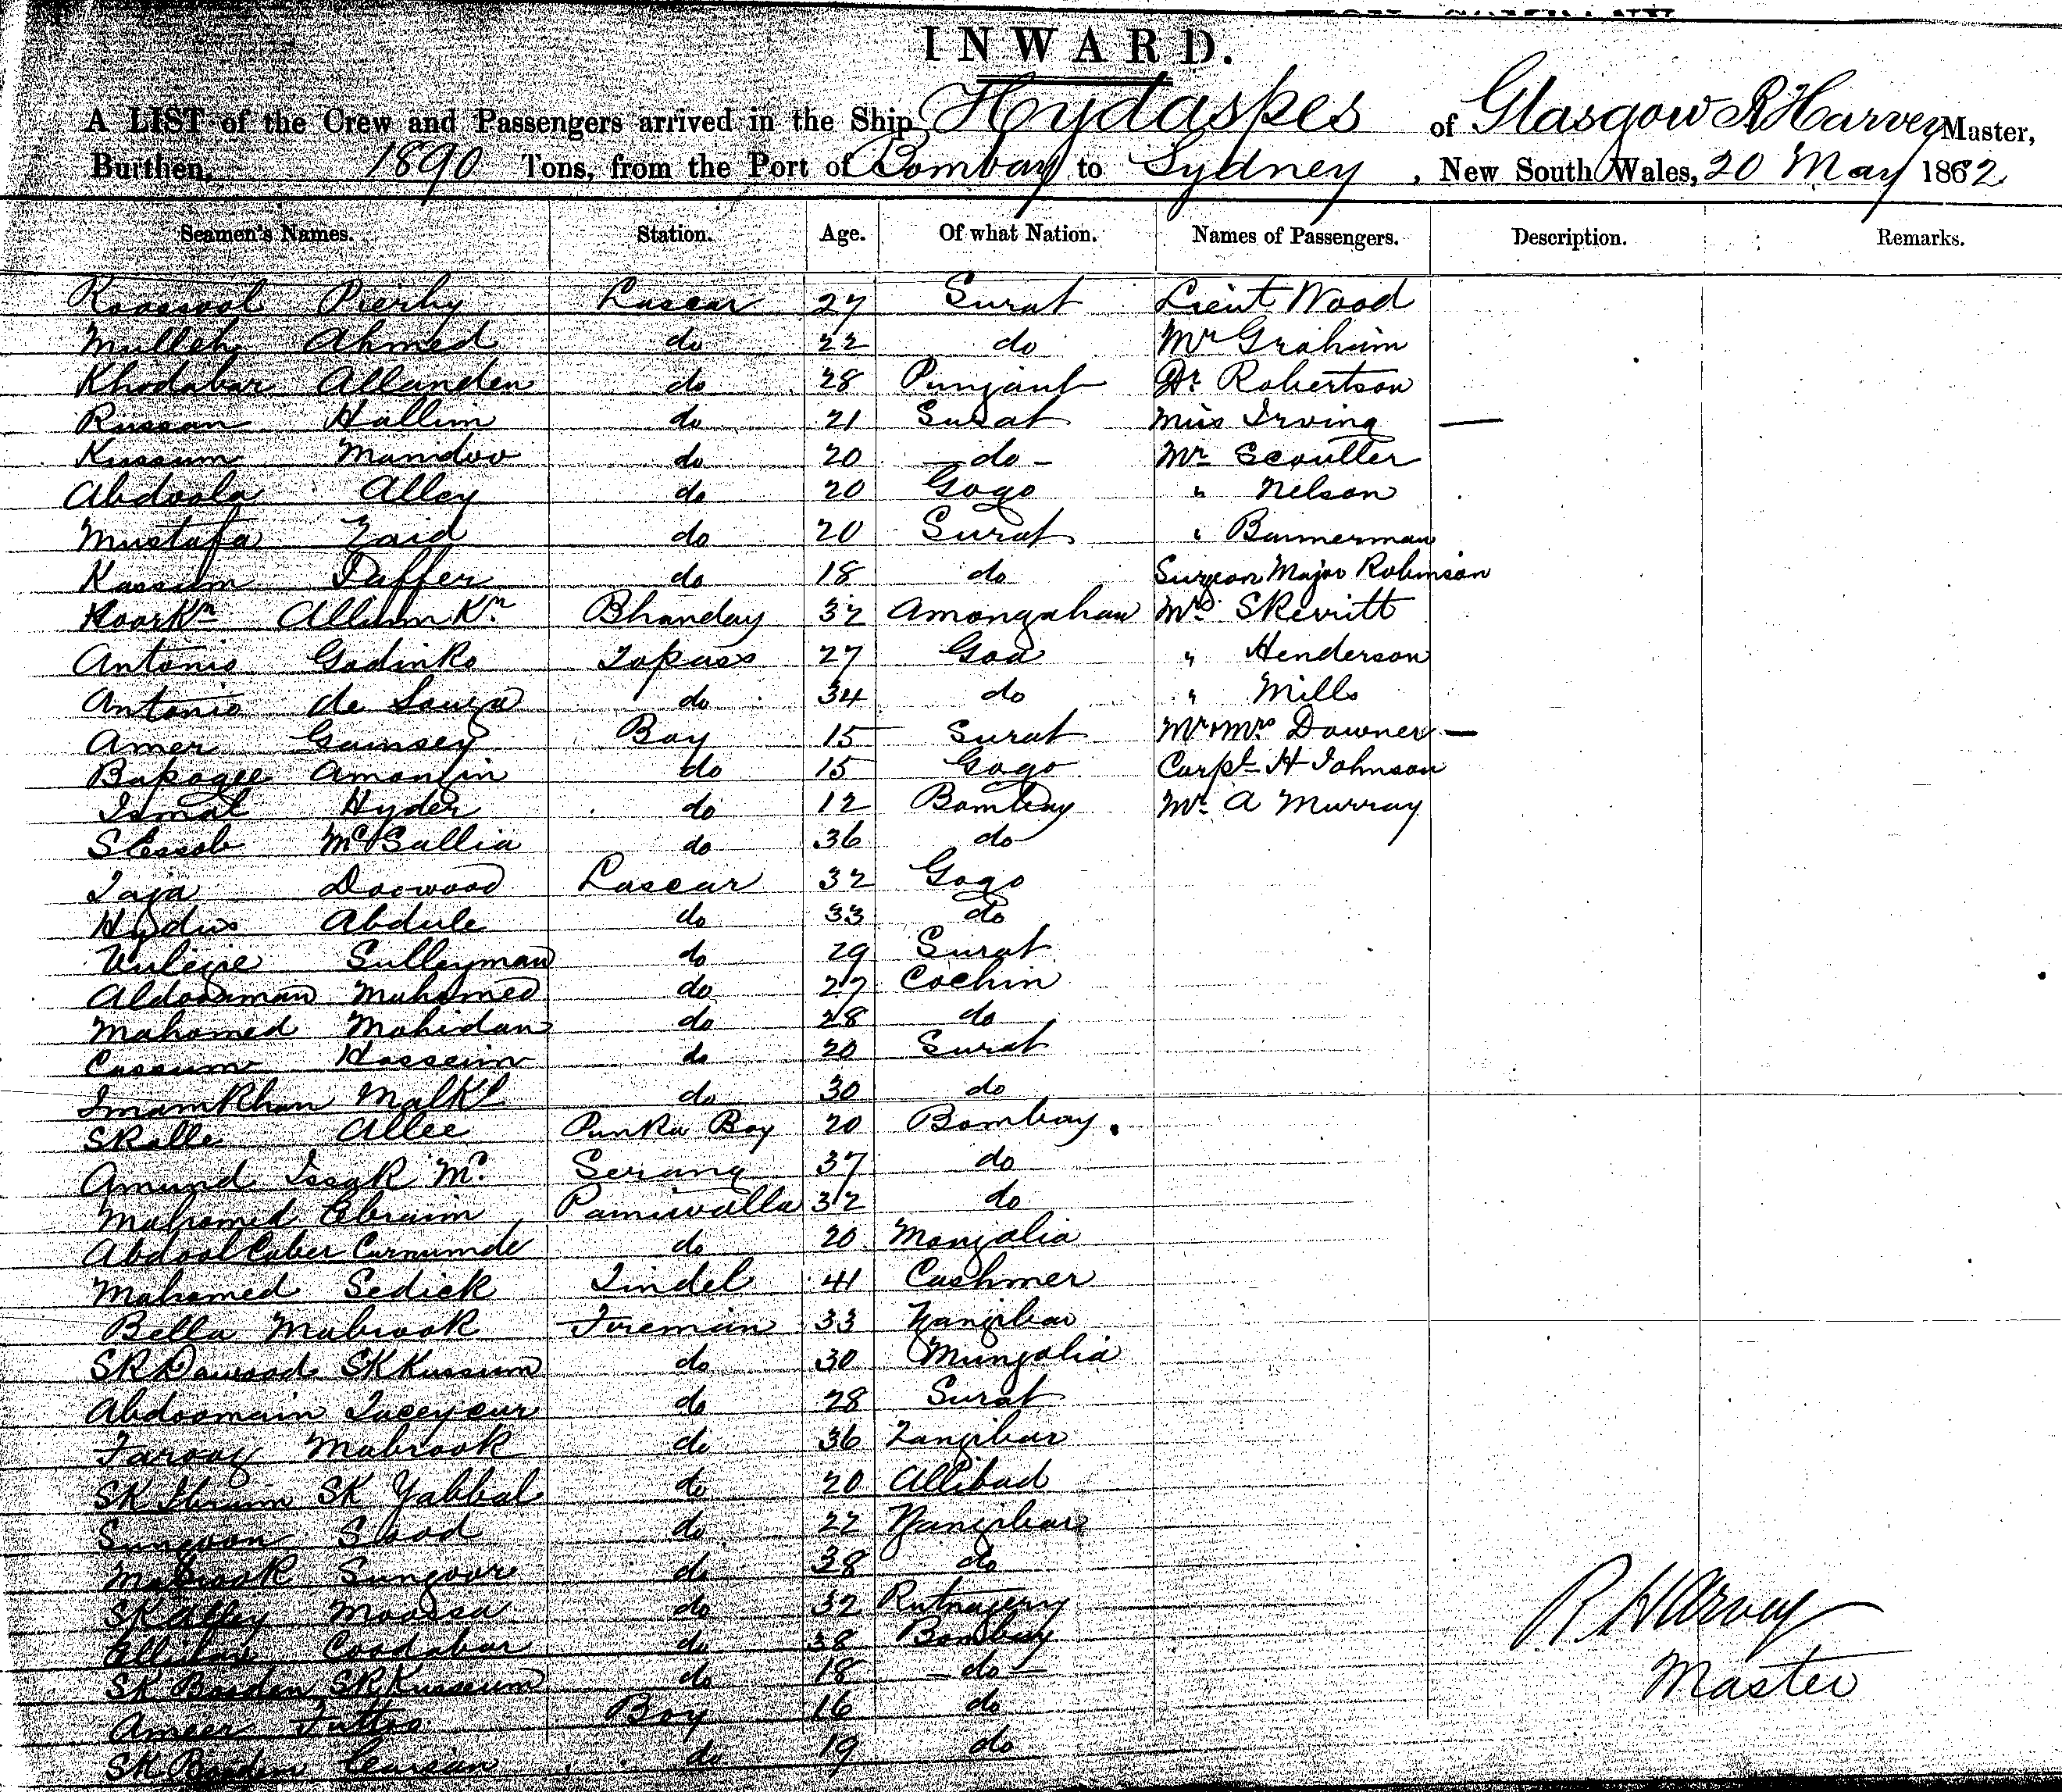 INWARD.
A LIST of the Crew and Passengers arrived in the Ship Hydaspes of Glasgow R Harvey Master,
Burthen, 1890 Tons, from the Port of Bombay to Sydney, New South Wales, 20 May 1882
Seamen's Names. Station. Age. Of what Nation. Names of Passengers. Description. Remarks.
Lascar 27 Surat Lieut Wood
Mulleh Ahmed do 22 do Mr Graham
Khodabar Allanden do 28 Punjaub Dr Robertson
Hallim do 21 Surat Miss Irving —
Kussum Mamdoo do 20 - do - Mr Scoulter
Abdoola Alley do 20 Gogo " Nelson
Mustafa Zaid do 20 Surat " Bannerman
Kassum do 18 do Surgeon Major Robinson
Bhanday 32 Mr Skevitt
Antonio Godinko Topass 27 Goa " Henderson
Antonio de Souza do 34 do " Mills
Amer Gamsey Boy 15 Surat Mr & Mrs Downer —
do 15 Gogo Corpl H Johnson
Ismal Hyder do 12 Bombay Mr A Murray
do 36 do
Doowood Lascar 32 Gogo
Abdule do 33 do
Sulleyman do 29 Surat
Mahomed do 27 Cochin
Mahomed Mohidan do 28 do
Cassum Hossein do 20 Surat
Imamkhan do 30 do
Allee Punka Boy 20 Bombay
Amund Issak Md Serang 37 do
Mahomed Ebraim 32 do
Abdool do 20
Mahomed Sedick Tindel 41 Cashmer
Bella Mabrook Fireman 33 Zanzibar
SK Dawood SK Kussum do 30
do 28 Surat
Farooy Mabrook do 36 Zanzibar
SK Ibram SK Yabbal do 20 Allibad
do 22 Zanzibar
Mabrook Sungoor do 38 do
SK Alley Moossa do 32 Rutnagerry
Coodabar do 38 Bombay
SK SK Kusseum do 18 - do -
Ameer Boy 16 do
SK do 19 do
R Harvey
Master